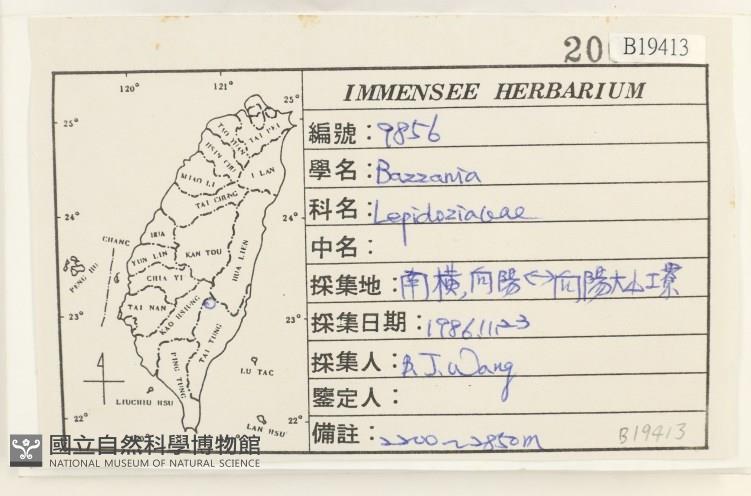 20
B19413
IMMENSEE HERBARIUM
編號：9856
學名：Bazzania
科名：Lepidoziaceae
中名：
採集地：南橫,向陽<->向陽大山工寮
採集日期：1986.11.23
採集人：B.J.Wang
鑒定人：
備註：2200~2850m
B19413
120°
121°
25°
25°
TAO YUAN
TAI PEI
HSIN CHU
MIAO LI
I LAN
TAI CHUNG
24°
24°
CHANG
HUA
YUN LIN
NAN TOU
HUA LIEN
PENG HU
CHIA YI
TAI NAN
KAO HSIUNG
23°
23°
TAI TUNG
PING TUNG
LU TAO
LIUCHIU HSU
LAN HSU
22°
22°
國立自然科學博物館
NATIONAL MUSEUM OF NATURAL SCIENCE